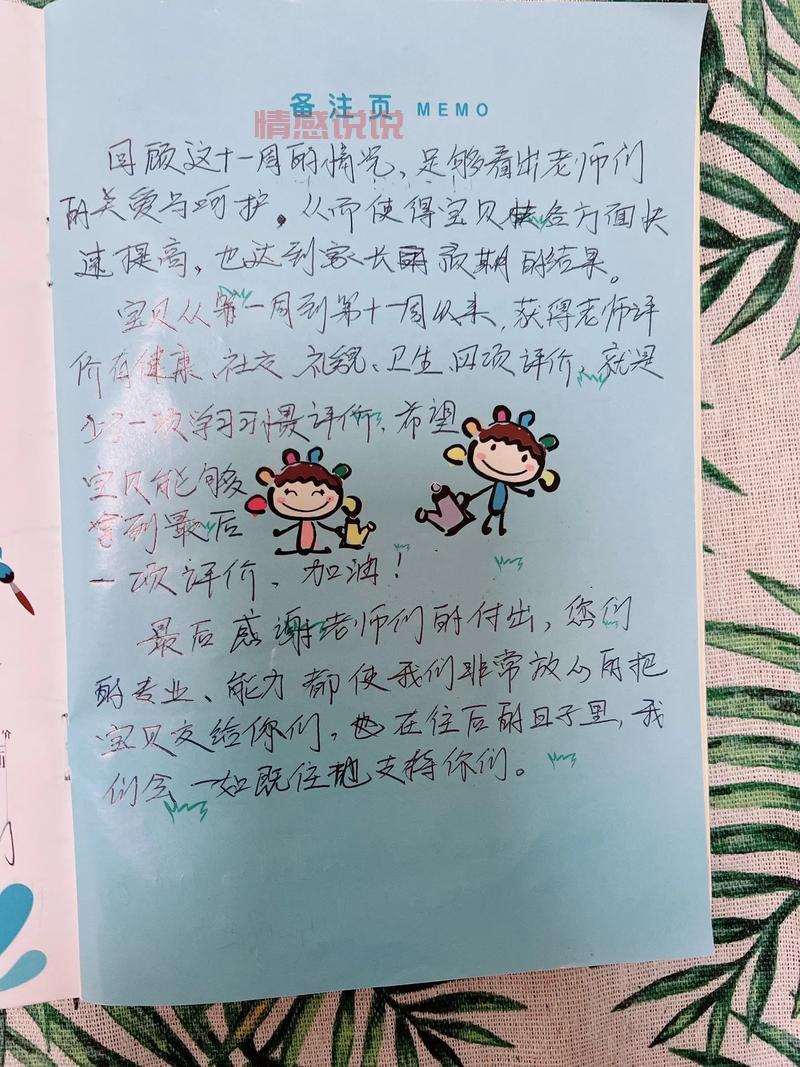 备注页 MEMO
情感说说
回顾这十一周的情况，足够看出老师们
的关爱与呵护，从而使得宝贝在各方面快
速提高，也达到家长预期的结果。
宝贝从第一周到第十一周以来，获得老师评
价有健康、社交、礼貌、卫生四项评价，就是
少了一项学习习惯评价，希望
宝贝能够
拿到最后
一项评价，加油！
最后感谢老师们的付出，您们
的专业、能力都使我们非常放心的把
宝贝交给你们，在往后的日子里，我
们会一如既往地支持你们。